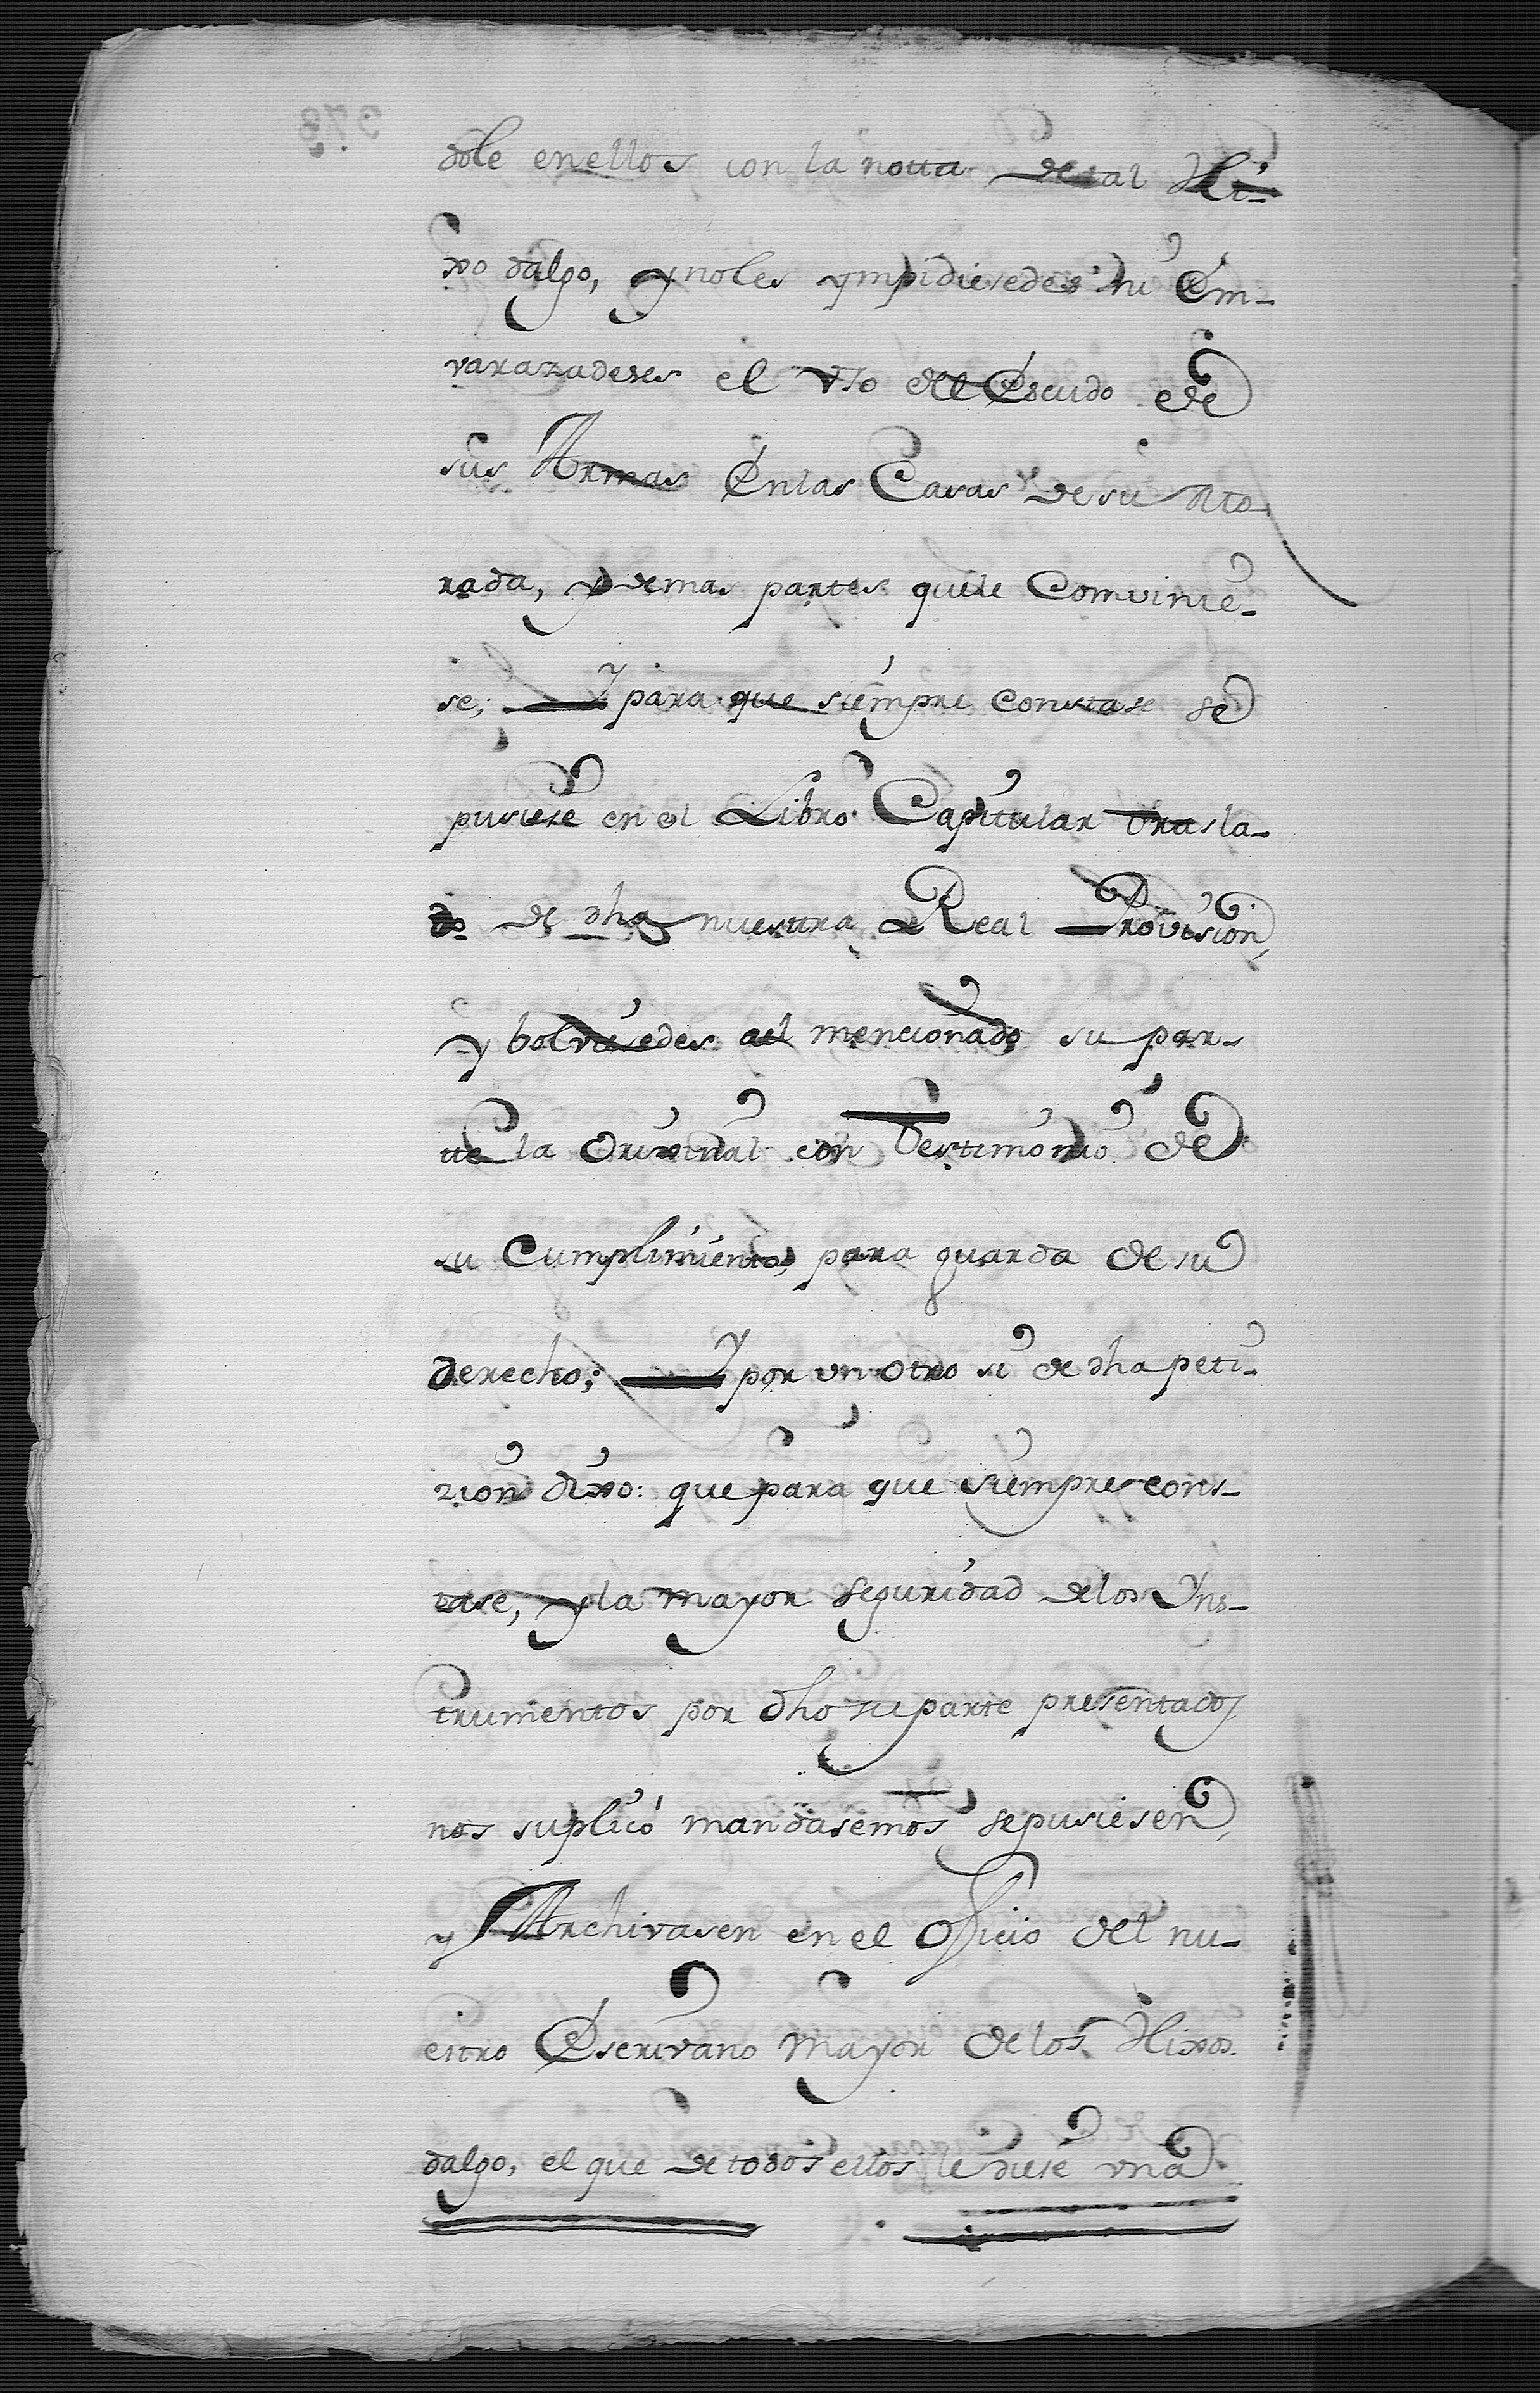 dole enellos con la notta de tal Hi-
xo dalgo, y noles ympidiesedes ni Em-
varazadeses el vso del Escudo de
sus Armas Enlas Casas de su Mo
rada, y demas partes quele Comvinie-
se; Y para que siempre constase se
pusiese en el Libro Capitular trasla-
do de dha nuestra Real Provision,
y bolviesedes al mencionado su par-
tte la Orixinal con Testimonio de
su Cumplimiento, para guarda de su
derecho; Y por un otro si de dha peti-
zion dixo: que para que siempre cons-
tase, y la mayor seguridad delos Yns-
trumentos por dho su parte presentados
nos suplicó mandasemos se pusiesen,
y Archivasen en el Oficio del nu-
estro Escrivano Mayor delos Hixos
dalgo, el que de todos ellos le diese una